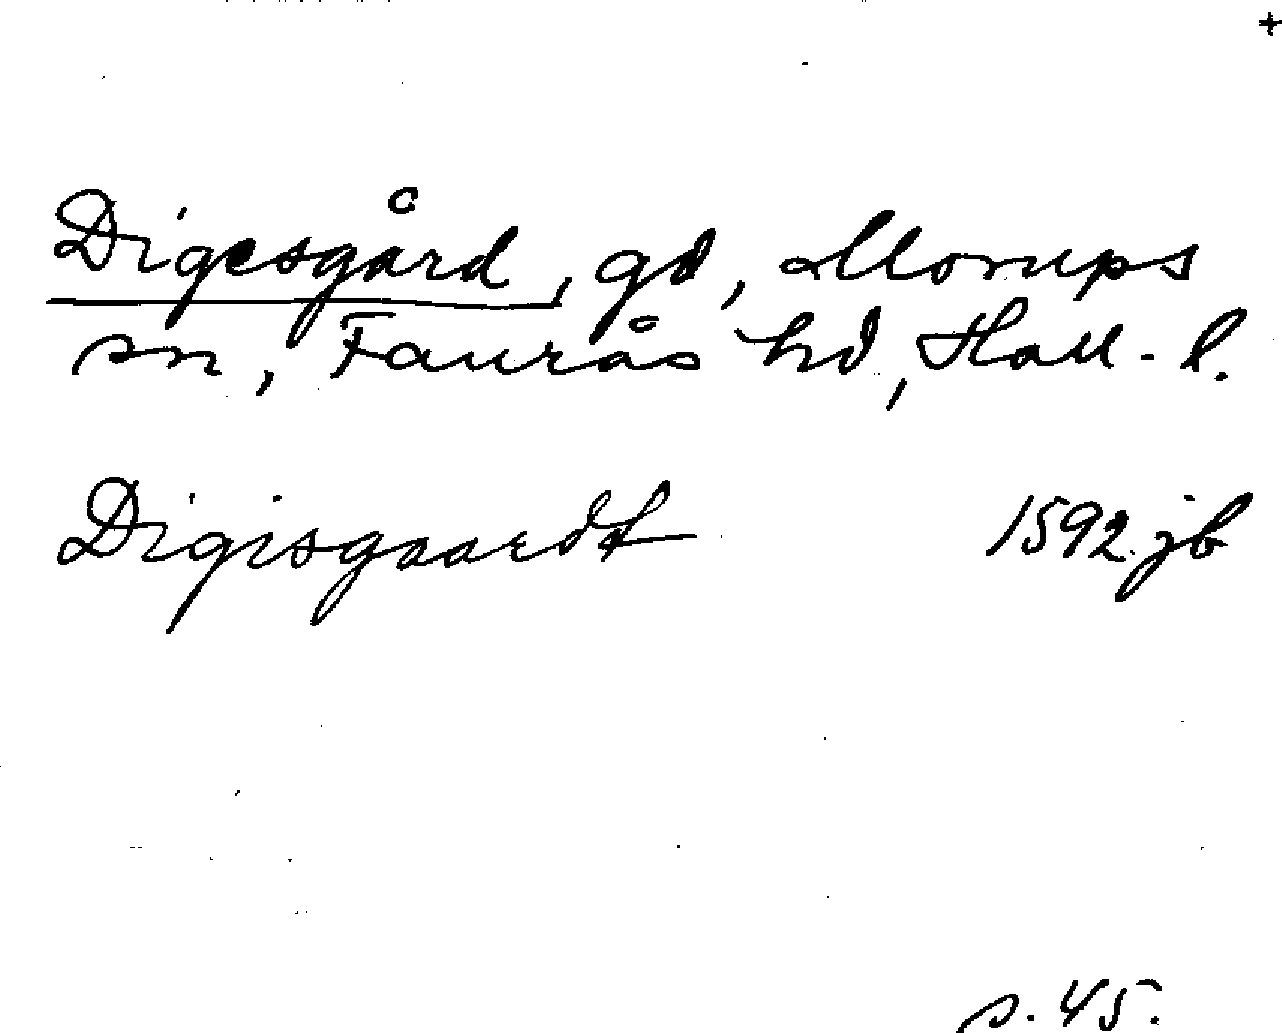 +
Digesgård, gd, Morups
sn, Faurås hd, Hall. l.
Digisgaardt 1592 jb
s. 45.